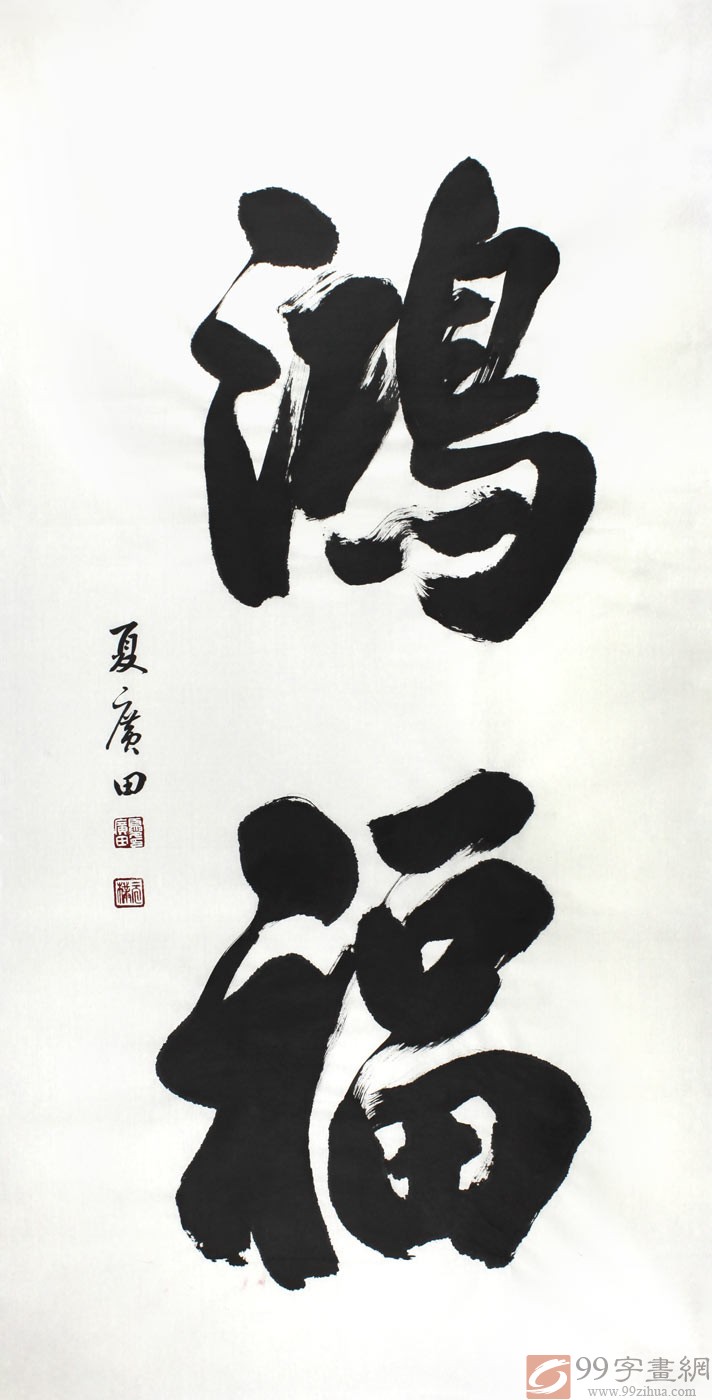 鴻福
夏廣田
99字畫網
www.99zihua.com